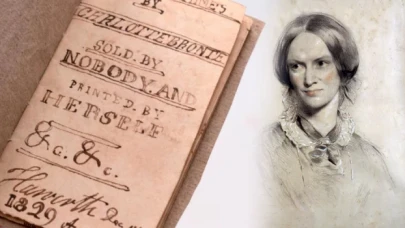 BY
CHARLOTTE BRONTE
SOLD BY
NOBODY AND
PRINTED BY
HERSELF
&c. &c.
Haworth
1829